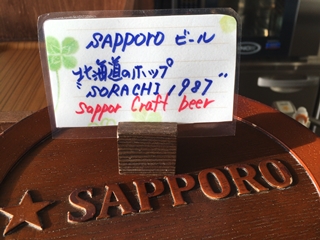 SAPPORO ビール
"北海道のホップ
"SORACHI 1987"
Sappor Craft beer
SAPPORO